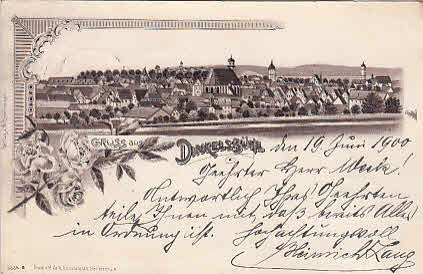 GRUSS aus
DINKELSBÜHL
den 19 Juni 1900
Geehrter Herr
Antwortlich Ihres Geehrten
teile Ihnen mit, daß bereits Alles
in Ordnung ist. Hochachtungsvoll
Heinrich Lang